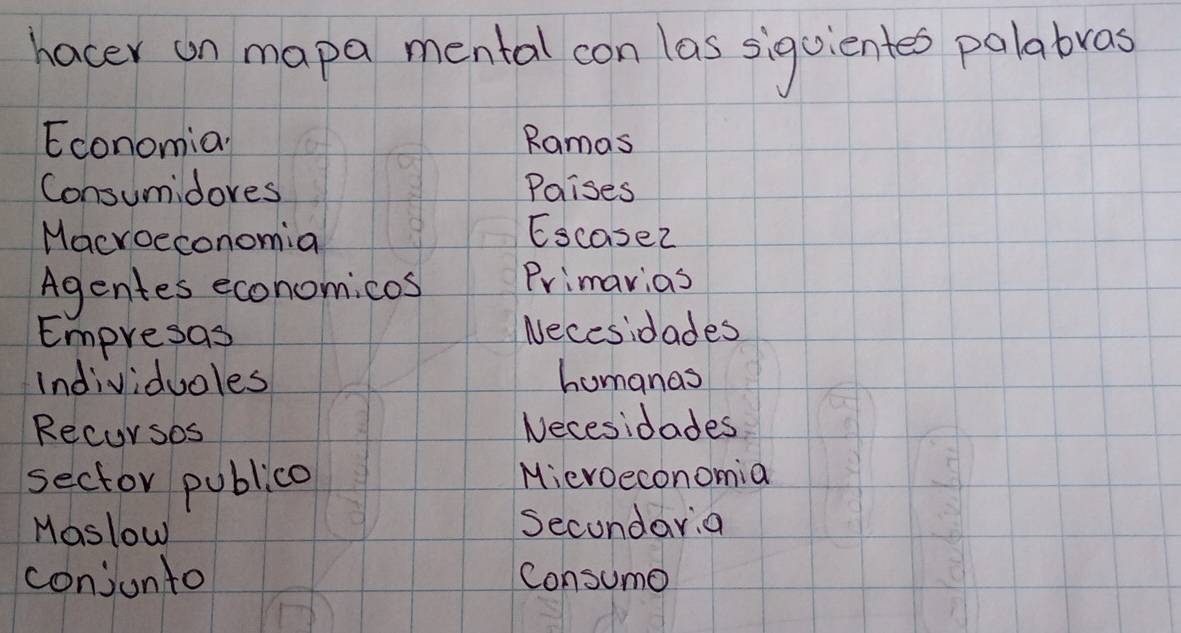 hacer un mapa mental con las siguientes palabras
Economia
Consumidores
Macroeconomia
Agentes economicos
Empresas
Individuales
Recursos
sector publico
Maslow
conjunto
Ramas
Paises
Escasez
Primarias
Necesidades
humanas
Necesidades
Microeconomia
Secundaria
Consumo